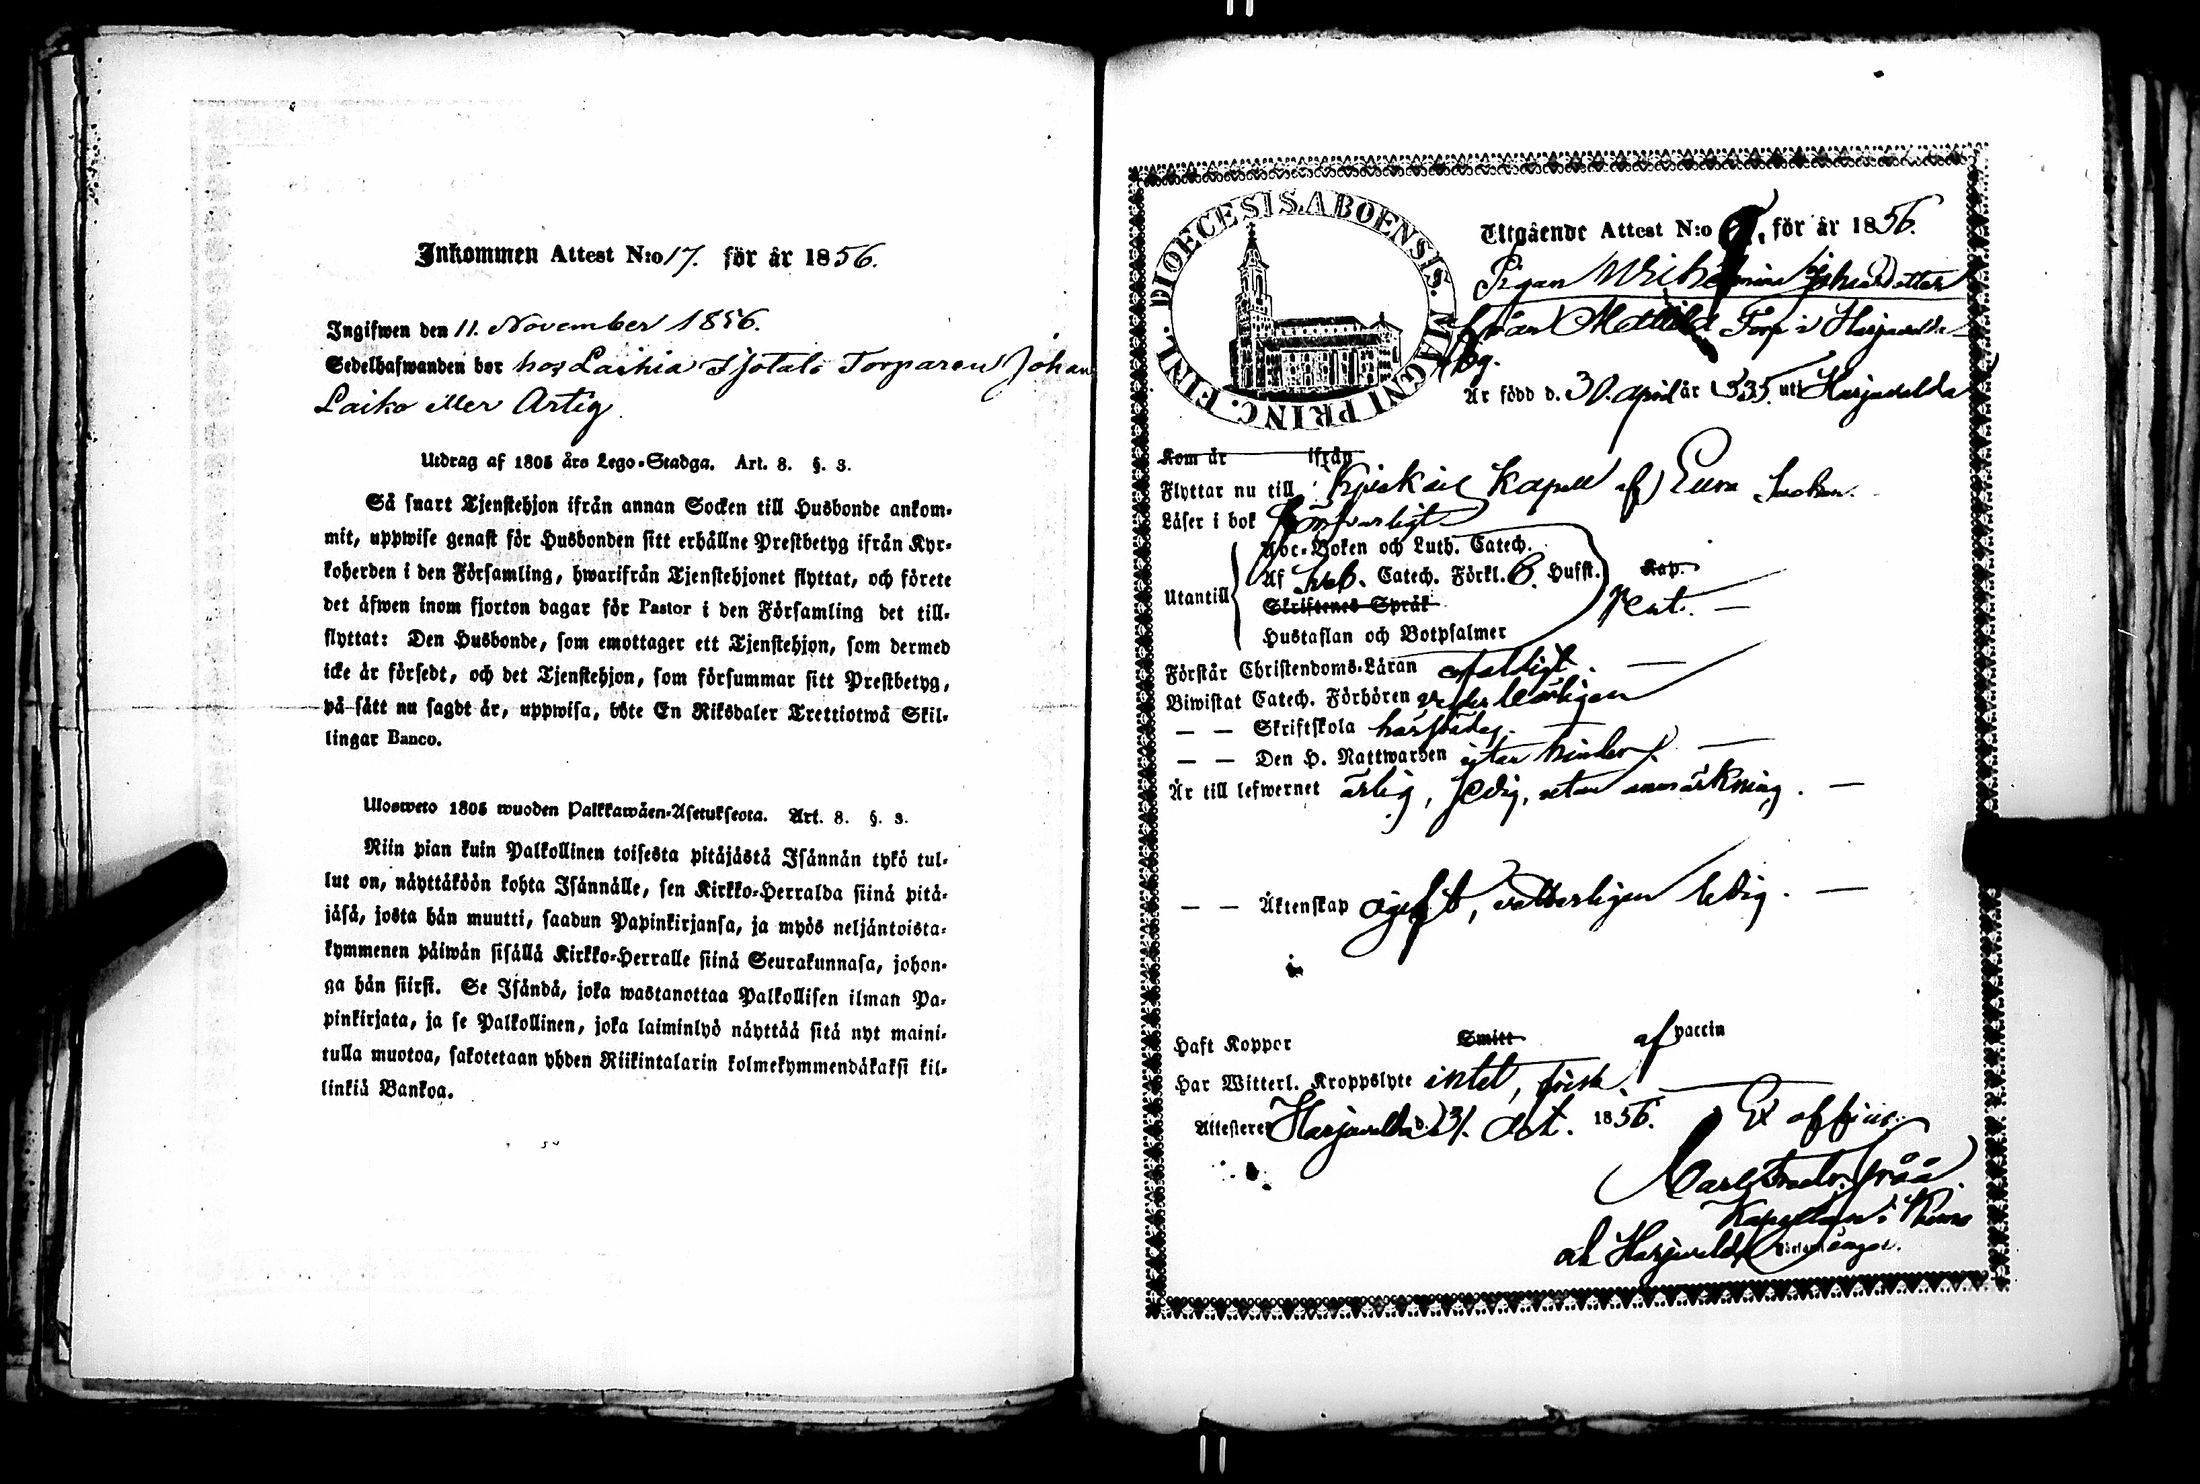 Inkommen Attest N:o 17. för år 1856.
Ingifwen den 11. November 1856.
Sedelhafwanden bor hos Laihia Torparen Johan
Laiko eller Artig
Utdrag af 1805 års Lego-Stadga. Art. 8. §. 3.
Så snart Tjenstehjon ifrån annan Socken till Husbonde ankom-
mit, uppwise genast för Husbonden sitt erhållne Prestbetyg ifrån Kyr-
koherden i den Församling, hwarifrån Tjenstehjonet flyttat, och förete
det äfwen inom fjorton dagar för Pastor i den Församling det till-
flyttat: Den Husbonde, som emottager ett Tjenstehjon, som dermed
icke är försedt, och det Tjenstehjon, som försummar sitt Prestbetyg,
på sätt nu sagdt är, uppwisa, böte En Riksdaler Trettiotwå Skil-
lingar Banco.
Ulosweto 1805 wuoden Palkkawäen-Asetuksesta. Art. 8. §. 3.
Niin pian kuin Palkollinen toisesta pitäjästä Isännän tykö tul-
lut on, näyttäköön kohta Isännälle, sen Kirkko-Herralda siinä pitä-
jäsä, josta hän muutti, saadun Papinkirjansa, ja myös neljäntoista-
kymmenen päiwän sisällä Kirkko-Herralle siinä Seurakunnasa, johon-
ga hän siirst. Se Isändä, joka wastanottaa Palkollisen ilman Pa-
pinkirjata, ja se Palkollinen, joka laiminlyö näyttää sitä nyt maini-
tulla muotoa, sakotetaan yhden Riikintalarin kolmekymmendäkaksi kil-
linkiä Bankoa.
DIOECESIS ABOENSIS. MAGNI PRINC. FINL.
Utgående Attest N:o för år 1856.
Pigan Wilhelmina Johansdotter
från Torp i Harjavalda
by.
Är född d. 30. april år 1835. uti Harjavalda
Kom år ifrån
Flyttar nu till Kjuikais Kapell af Eura Socken.
Läser i bok försvarligt
Abc-Boken och Luth. Catech.
Af Catech. Förkl. Hufst. Kap.
Utantill
Skriftenes Språk
Hustaflan och Botpsalmer
Förstår Christendoms-Läran
Biwistat Catech. Förhören vederbörligen
— — Skriftskola härstädes.
— — Den H. Nattwarden utan hinder.
Är till lefwernet ärlig, ledig, utan anmärkning.
— — Äktenskap ogift, ledig.
Haft Koppor Smitt af vaccin
Har Witterl. Kroppslyte intet, frisk.
Attesteres Harjavalda d. 31. Oct. 1856. Ex officio:
Carl Fredr.
Kapellan i Kumo
och Harjavalda Församlingar.